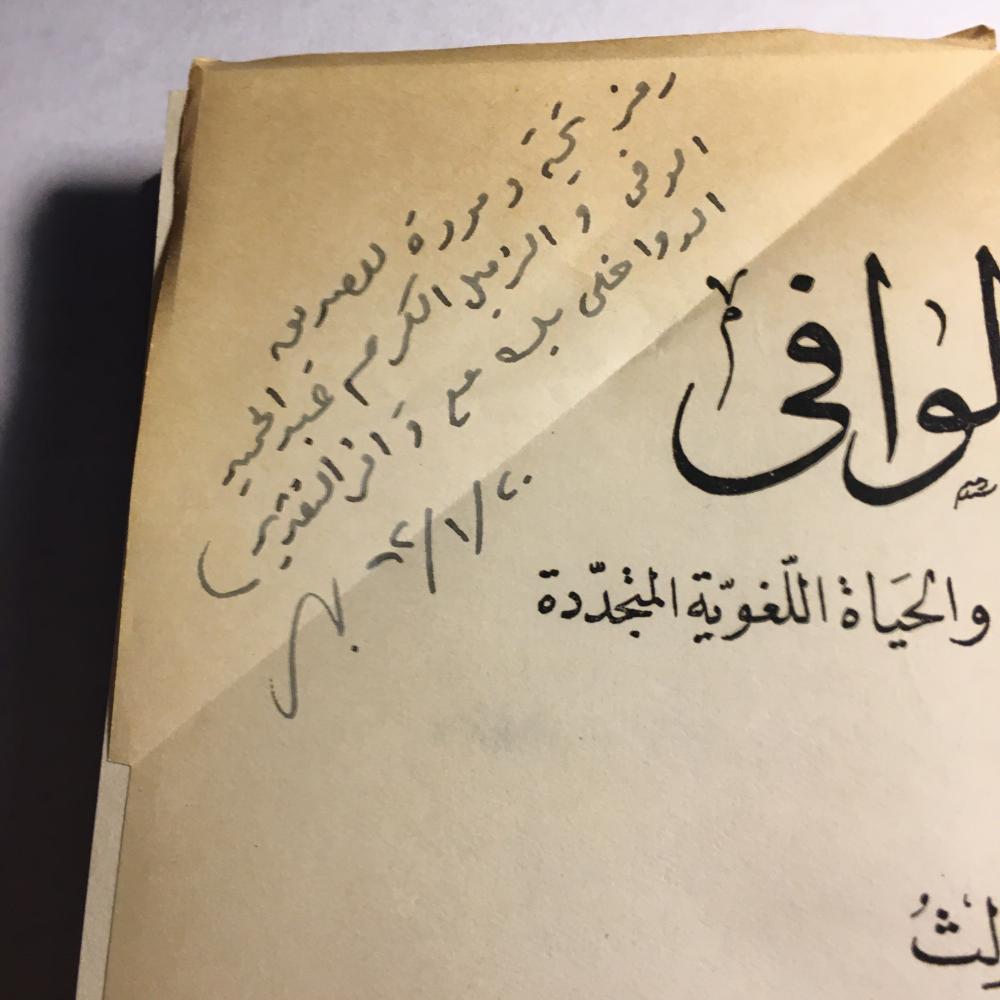 رمز تحية ومودة للصديق
الوفى والزميل الكريم عبد الحميد
الدواخلى بك مع وافر التقدير
٢٠/١/٦٢
لوافى
والحياة اللّغويّة المتجدّدة
لثُ